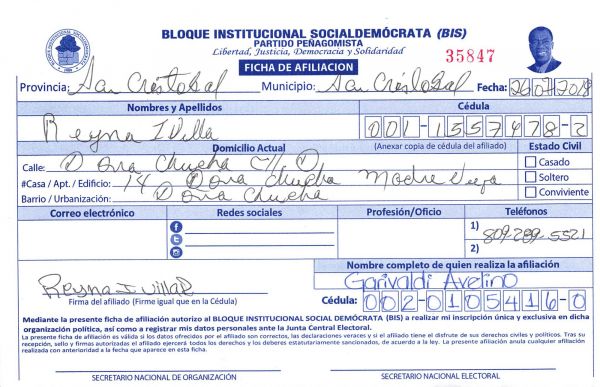 BLOQUE INSTITUCIONAL SOCIALDEMÓCRATA (BIS)
PARTIDO PEÑAGOMISTA
Libertad, Justicia, Democracia y Solidaridad
35847
FICHA DE AFILIACION
Provincia: San Cristobal Municipio: San Cristobal Fecha: 26/07/2018
Nombres y Apellidos Cédula
Reyna I Villa 001-1557478-2
Domicilio Actual (Anexar copia de cédula del afiliado) Estado Civil
Calle: Dona Chucha C// D Casado
#Casa / Apt. / Edificio: 14 Dona Chucha Madre Vieja Soltero
Barrio / Urbanización: Dona Chucha Conviviente
Correo electrónico Redes sociales Profesión/Oficio Teléfonos
1) 809-289-5521
2)
Nombre completo de quien realiza la afiliación
Reyna I. Villa Garivaldi Avelino
Firma del afiliado (Firme igual que en la Cédula) Cédula: 002-0105416-0
Mediante la presente ficha de afiliación autorizo al BLOQUE INSTITUCIONAL SOCIAL DEMÓCRATA (BIS) a realizar mi inscripción única y exclusiva en dicha
organización política, así como a registrar mis datos personales ante la Junta Central Electoral.
La presente ficha de afiliación es válida si los datos ofrecidos por el afiliado son correctos, las declaraciones veraces y si el afiliado tiene el disfrute de sus derechos civiles y políticos. Tras su
recepción, sello y firmas autorizadas el afiliado ejercerá todos los derechos y los deberes estatutariamente sancionados, de acuerdo a la ley. La presente afiliación anula cualquier afiliación
realizada con anterioridad a la fecha que aparece en esta ficha.
SECRETARIO NACIONAL DE ORGANIZACIÓN SECRETARIO NACIONAL ELECTORAL